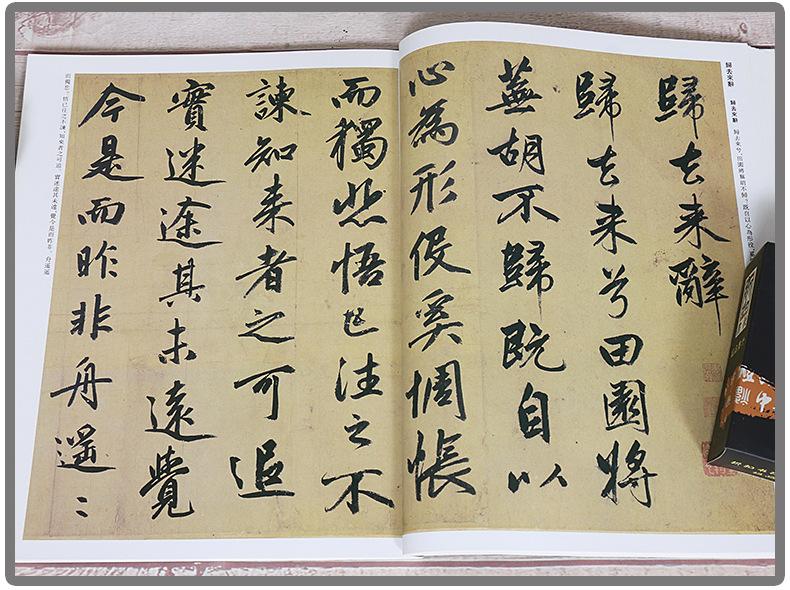 歸去來辭
歸去來辭 歸去來兮,田園將蕪胡不歸?既自以心為形役,奚
歸去来辭
歸去来兮田園将
蕪胡不歸既自以
心為形役奚惆悵
而獨悲悟已往之不
諫知来者之可追
實迷途其未遠覺
今是而昨非舟遥〻
而獨悲。悟已往之不諫,知來者之可追。實迷途其未遠,覺今是而昨非。舟遥遥